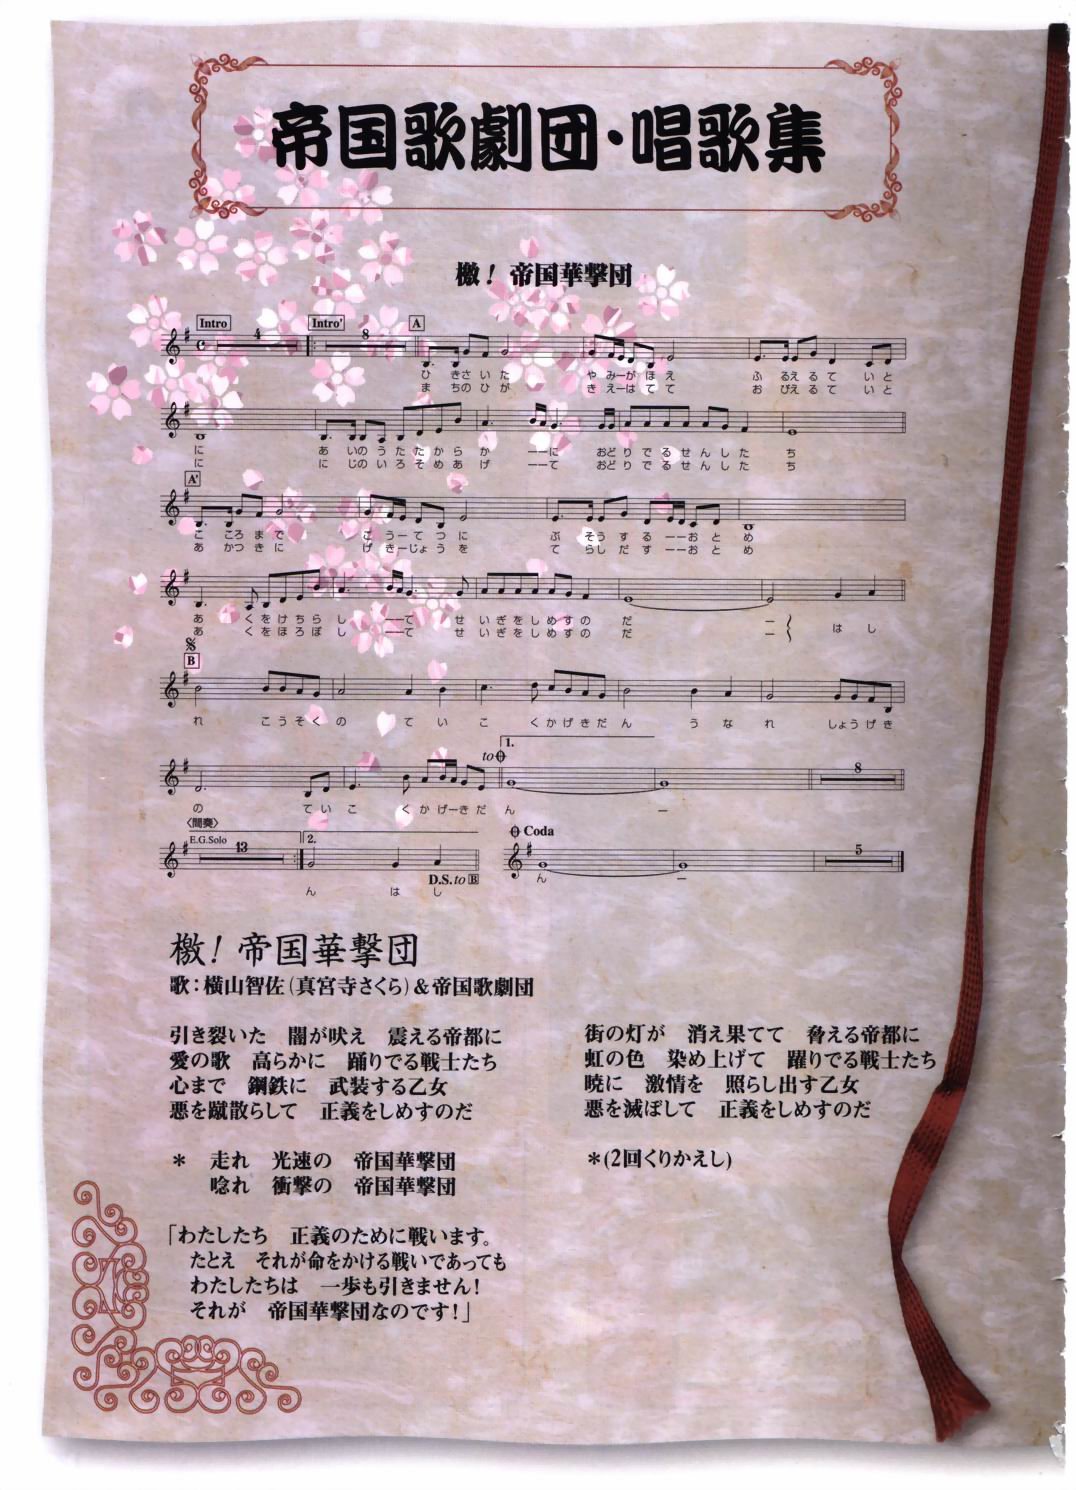 帝国歌劇団・唱歌集
檄！帝国華撃団
Intro 4 Intro' 8 A
ひ きさ いた や みーが ほ え ふ るえ る て い と
ま ちの ひ が き えーは て て お びえ る て い と
に あ いの う た た か ら か ーーに おど り で る せ ん し た ち
に に じの い ろ そ め あ げ ーーて おど り で る せ ん し た ち
A'
こ ころ ま で こ うーて つ に ぶ そう す る ーーお と め
あ かつ き に げ きーじょ う を て らし だ す ーーお と め
あ く を け ち ら し ーーて せ い ぎ を し め す の だ ー は し
あ く を ほ ろ ぼ し ーーて せ い ぎ を し め す の だ ー
B
れ こ う そ く の て い こ く か げ き だ ん う な れ しょ う げ き
to 1. 8
の て い こ く か げーき だ ん ー
〈間奏〉
E.G.Solo 13 2. D.S. to B
ん は し
Coda 5
ん ー
檄！帝国華撃団
歌：横山智佐（真宮寺さくら）＆帝国歌劇団
引き裂いた　闇が吠え　震える帝都に
愛の歌　高らかに　踊りでる戦士たち
心まで　鋼鉄に　武装する乙女
悪を蹴散らして　正義をしめすのだ
＊　走れ　光速の　帝国華撃団
唸れ　衝撃の　帝国華撃団
「わたしたち　正義のために戦います。
たとえ　それが命をかける戦いであっても
わたしたちは　一歩も引きません！
それが　帝国華撃団なのです！」
街の灯が　消え果てて　脅える帝都に
虹の色　染め上げて　躍りでる戦士たち
暁に　激情を　照らし出す乙女
悪を滅ぼして　正義をしめすのだ
＊(2回くりかえし)